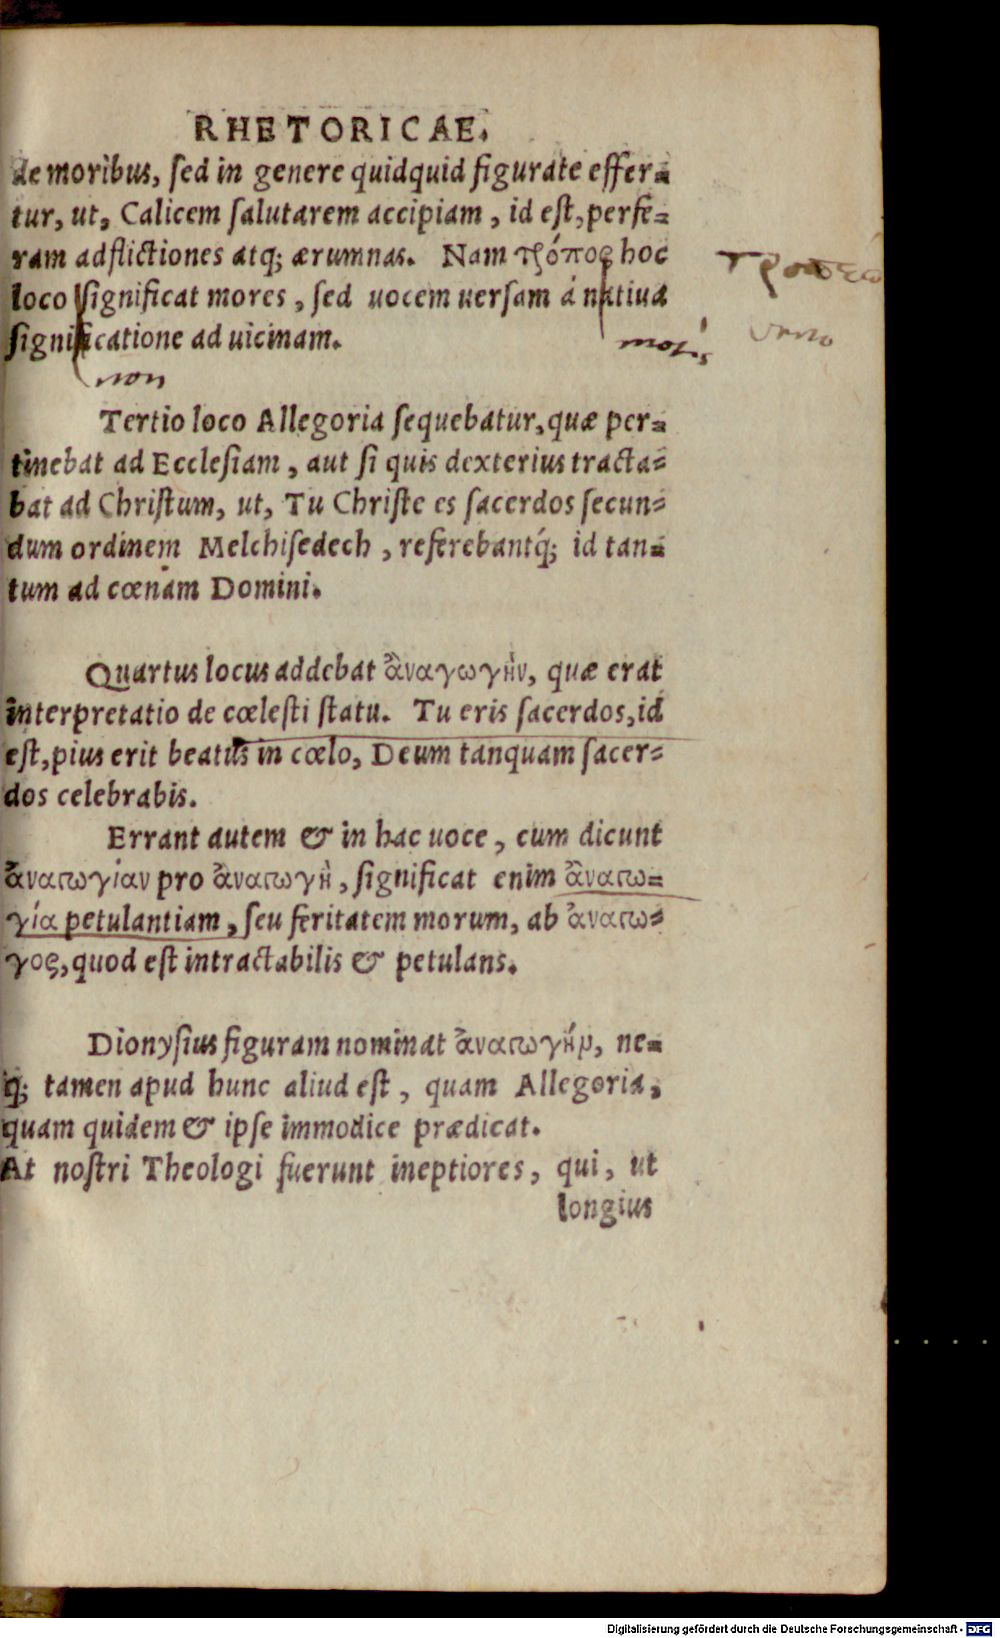 RHETORICAE.
de moribus, ſed in genere quidquid figurate effer=
tur, ut, Calicem ſalutarem accipiam, id eſt, perfe=
ram adflictiones atq; ærumnas. Nam τρόπος hoc
loco ſignificat mores, ſed uocem uerſam á natiua
ſignificatione ad uicinam.
non
Tertio loco Allegoria ſequebatur, quæ per=
tinebat ad Eccleſiam, aut ſi quis dexterius tracta=
bat ad Chriſtum, ut, Tu Chriſte es ſacerdos ſecun=
dum ordinem Melchiſedech, referebantq́; id tan=
tum ad cœnam Domini.
Quartus locus addebat ἀναγωγὴν, quæ erat
interpretatio de cœleſti ſtatu. Tu eris ſacerdos, id
eſt, pius erit beatus in cœlo, Deum tanquam ſacer=
dos celebrabis.
Errant autem & in hac uoce, cum dicunt
ἀναγωγίαν pro ἀναγωγὴ, ſignificat enim ἀναγω=
γία petulantiam, ſeu feritatem morum, ab ἀναγω=
γος, quod eſt intractabilis & petulans.
Dionyſius figuram nominat ἀναγωγήν, ne=
q; tamen apud hunc aliud eſt, quam Allegoria,
quam quidem & ipſe immodice prædicat.
At noſtri Theologi fuerunt ineptiores, qui, ut
longius
Digitalisierung gefördert durch die Deutsche Forschungsgemeinschaft - DFG